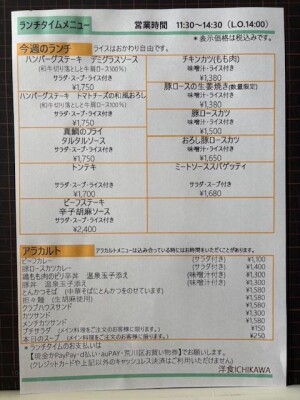 ランチタイムメニュー
営業時間 11:30~14:30 (L.O.14:00)
*表示価格は税込みです。
今週のランチ ライスはおかわり自由です。
ハンバーグステーキ デミグラスソース
(和牛切り落としと牛肩ロース100%)
サラダ・スープ・ライス付き
¥1,750
チキンカツ(もも肉)
味噌汁・ライス付き
¥1,380
ハンバーグステーキ トマトチーズの和風おろし
(和牛切り落としと牛肩ロース100%)
サラダ・スープ・ライス付き
¥1,750
豚ロースの生姜焼き(数量限定)
味噌汁・ライス付き
¥1,500
真鯛のフライ
タルタルソース
サラダ・スープ・ライス付き
¥1,750
豚ロースカツ
味噌汁・ライス付き
¥1,500
おろし豚ロースカツ
味噌汁・ライス付き
¥1,650
トンテキ
サラダ・スープ・ライス付き
¥1,700
ミートソーススパゲッティ
サラダ・スープ付き
¥1,680
ビーフステーキ
辛子胡麻ソース
サラダ・スープ・ライス付き
¥2,400
アラカルト アラカルトメニューは込み合っている時にはお時間をいただくことがあります。
ビーフカレー (サラダ付き) ¥1,100
豚ロースカツカレー (サラダ付き) ¥1,400
鶏もも肉のピリ辛丼 温泉玉子添え (味噌汁付き) ¥1,100
豚丼 温泉玉子添え (味噌汁付き) ¥1,300
とんかつそば (中華そばにとんかつをのせています) ¥1,580
担々麺 (生胡麻使用) ¥1,580
クラブハウスサンド ¥1,580
カツサンド ¥1,300
メンチカツサンド ¥1,580
プチサラダ (メイン料理をご注文のお客様に限ります。) ¥150
本日のスープ (メイン料理をご注文のお客様に限ります。) ¥250
*ランチタイムのお支払いは
【現金かPayPay・d払い・auPAY・荒川区お買い物券】でお願いします。
(クレジットカードや上記以外のキャッシュレス決済はご利用いただけません)
洋食ICHIKAWA